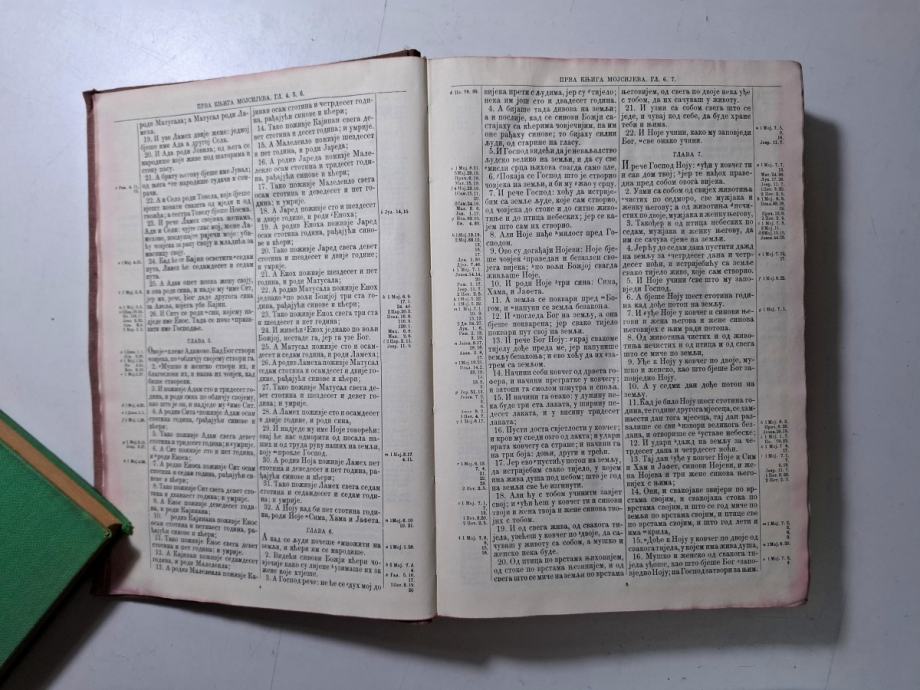 ПРВА КЊИГА МОЈСИЈЕВА, ГЛ. 4. 5. 6.
родн Матусала; а Матусал роди Ла-
меха.
19. И узе Ламех двије жене: једној
бјеше име Ада а другој Села.
20. И Ада роди Јовила; од њега се
народише који живе под шаторима и
стоку пасу.
21. А брату његову бјеше име Јувал;
од њега се народише гудачи и сви-
рачи.
22. А и Села роди Товела, који бјеше
вјешт ковати свашта од мједи и од
гвожђа; а сестра Товелу бјеше Ноема.
23. И рече Ламех својима женама,
Ади и Сели: чујте глас мој, жене Ла-
мехове, послушајте ријечи моје: уби-
ћу човјека за рану своју и младића за
масницу своју.
24. Кад ће се Кајин осветити седам
пута, Ламех ће седамдесет и седам
пута.
25. А Адам опет позна жену своју,
и она роди сина, и надједе му име Сит,
јер ми, рече, Бог даде другога сина
за Авеља, којега уби Кајин.
26. И Ситу се роди син, којему на-
дједе име Енос. Тада се поче прази-
вати име Господње.
ГЛАВА 5.
Ово је племе Адамово. Кад Бог створи
човјека, по обличју својему створи га.
2. Мушко и женско створи их, и
благослови их, и назва их човјек, кад
бише створени.
3. И поживје Адам сто и тридесет го-
дина, и роди сина по обличју својему,
као што је он, и надједе му име Сит.
4. А родив Сита поживје Адам осам
стотина година, рађајући синове и
кћери;
5. Тако поживје Адам свега девет
стотина и тридесет година; и умрије.
6. А Сит поживје сто и пет година,
и роди Еноса;
7. А родив Еноса поживје Сит осам
стотина и седам година, рађајући си-
нове и кћери;
8. Тако поживје Сит свега девет сто-
тина и дванаест година; и умрије.
9. А Енос поживје деведесет годи-
на, и роди Кајинана;
10. А родив Кајинана поживје Енос
осам стотина и петнаест година, ра-
ђајући синове и кћери;
11. Тако поживје Енос свега девет
стотина и пет година; и умрије.
12. А Кајинан поживје седамдесет
година, и роди Малелеила;
13. А родив Малелеила поживје Ка-
јинан осам стотина и четрдесет годи-
на, рађајући синове и кћери;
14. Тако поживје Кајинан свега де-
вет стотина и десет година; и умрије.
15. А Малелеило поживје шездесет
и пет година, и роди Јареда;
16. А родив Јареда поживје Малеле-
ило осам стотина и тридесет година,
рађајући синове и кћери;
17. Тако поживје Малелеило свега
осам стотина и деведесет и пет го-
дина; и умрије.
18. А Јаред поживје сто и шездесет
и двије године, и роди Еноха;
19. А родив Еноха поживје Јаред
осам стотина година, рађајући синове
и кћери;
20. Тако поживје Јаред свега девет
стотина и шездесет и двије године;
и умрије.
21. А Енох поживје шездесет и пет
година, и роди Матусала;
22. А родив Матусала поживје Енох
једнако по вољи Божјој три ста го-
дина, рађајући синове и кћери;
23. Тако поживје Енох свега три ста
и шездесет и пет година;
24. И живећи Енох једнако по вољи
Божјој, нестаде га, јер га узе Бог.
25. А Матусал поживје сто и осамде-
сет и седам година, и роди Ламеха;
26. А родив Ламеха поживје Матусал
седам стотина и осамдесет и двије го-
дине, рађајући синове и кћери;
27. Тако поживје Матусал свега де-
вет стотина и шездесет и девет го-
дина; и умрије.
28. А Ламех поживје сто и осамдесет
и двије године, и роди сина,
29. И надједе му име Ноје говорећи:
овај ће нас одморити од посала на-
ших и од труда руку наших на земљи,
коју прокле Господ.
30. А родив Ноја поживје Ламех пет
стотина и деведесет и пет година, ра-
ђајући синове и кћери;
31. Тако поживје Ламех свега седам
стотина и седамдесет и седам годи-
на; и умрије.
32. А Ноју кад би пет стотина годи-
на, роди Ноје Сима, Хама и Јафета.
ГЛАВА 6.
А кад се људи почеше множити на
земљи, и кћери им се народише,
2. Видећи синови Божји кћери чо-
вјечије како су лијепе узимаше их за
жене које хтјеше.
3. А Господ рече: неће се дух мој до
ПРВА КЊИГА МОЈСИЈЕВА, ГЛ. 6. 7.
вијека прети с људима, јер су тијело;
нека им још сто и двадесет година.
4. А бијаше тада дивова на земљи;
а и послије, кад се синови Божји са-
стајаху са кћерима човјечијим, па им
оне рађаху синове; то бијаху силни
људи, од старине на гласу.
5. И Господ видећи да је неваљалство
људско велико на земљи, и да су све
мисли срца њихова свагда само зле,
6. Покаја се Господ што је створио
човјека на земљи, и би му жао у срцу.
7. И рече Господ: хоћу да истријe-
бим са земље људе, које сам створио,
од човјека до стоке и до ситне живо-
тиње и до птица небеских; јер се ка-
јем што сам их створио.
8. Али Ноје нађе милост пред Го-
сподом.
9. Ово су догађаји Нојеви: Ноје бје-
ше човјек праведан и безазлен сво-
јега вијека; по вољи Божјој свагда
живљаше Ноје.
10. И роди Ноје три сина: Сима,
Хама, и Јафета.
11. А земља се поквари пред Бо-
гом, и напуни се земља безакоња.
12. И погледа Бог на земљу, а она
бјеше покварена; јер свако тијело
поквари пут свој на земљи.
13. И рече Бог Ноју: крај свакоме
тијелу дође преда ме, јер напунише
земљу безакоња; и ево хоћу да их за-
трем са земљом.
14. Начини себи ковчег од дрвета го-
фера, и начини прегратке у ковчегу;
и затопи га смолом изнутра и споља.
15. И начини га овако: у дужину не-
ка буде три ста лаката, у ширину пе-
десет лаката, и у висину тридесет
лаката;
16. Пусти доста свјетлости у ковчег;
и кров му сведи озго од лакта; и удари
врата ковчегу са стране; и начини га
на три боја: доњи, други и трећи.
17. Јер ево пустићу потоп на земљу,
да истријебим свако тијело, у којем
има жива душа под небом; што је год
на земљи све ће изгинути.
18. Али ћу с тобом учинити завјет
свој; и ући ћеш у ковчег ти и синови
твоји и жена твоја и жене синова тво-
јих с тобом.
19. И од свега жива, од свакога ти-
јела, узећеш у ковчег по двоје, да са-
чуваш у животу са собом, а мушко и
женско нека буде.
20. Од птица по врстама њиховијем,
од стоке по врстама њезиним, и од
свега што се миче на земљи по врстама
његовијем, од свега по двоје нека уђе
с тобом, да их сачуваш у животу.
21. И узми са собом свега што се
једе, и чувај под себе, да буде хране
теби и њима.
22. И Ноје учини, како му заповједи
Бог, све онако учини.
ГЛАВА 7.
И рече Господ Ноју: уђи у ковчег ти
и сав дом твој; јер те нађох праве-
дна пред собом овога вијека.
2. Узми са собом од свијех животиња
чистих по седморо, све мужјака и
женку његову; а од животиња нечи-
стих по двоје, мужјака и женку његову,
3. Такођер и од птица небеских по
седам, мужјака и женку његову, да
им се сачува сјеме на земљи.
4. Јер ћу до седам дана пустити дажд
на земљу за четрдесет дана и четрде-
сет ноћи, и истријебићу са земље
свако тијело живо, које сам створио.
5. И Ноје учини све што му запо-
вједи Господ.
6. А бјеше Ноју шест стотина годи-
на кад дође потоп на земљу.
7. И уђе Ноје у ковчег и синови ње-
гови и жена његова и жене синова
његовијех с њим ради потопа.
8. Од животиња чистих и од живо-
тиња нечистих и од птица и од свега
што се миче по земљи,
9. Уђе к Ноју у ковчег по двоје, му-
шко и женско, као што бјеше Бог за-
повједио Ноју.
10. А у седми дан дође потоп на
земљу.
11. Кад је било Ноју шест стотина го-
дина, те године другога мјесеца, седам-
наести дан тога мјесеца, тај дан раз-
валише се сви извори великога без-
дана, и отворише се уставе небеске;
12. И удари дажд на земљу за че-
трдесет дана и четрдесет ноћи.
13. Тај дан уђе у ковчег Ноје и Сим
и Хам и Јафет, синови Нојеви, и же-
на Нојева и три жене синова њего-
вијех с њим;
14. Они, и свакојаке звијери по вр-
стама својим, и свакојака стока по
врстама својим, и што се год миче по
земљи по врстама својим, и птице све
по врстама својим, и што год лети и
има крила,
15. Дође к Ноју у ковчег по двоје од
свакога тијела, у којем има жива душа,
16. Мушко и женско од свакога ти-
јела уђоше, као што бјеше Бог запо-
вједио Ноју; па Господ затвори за њим.